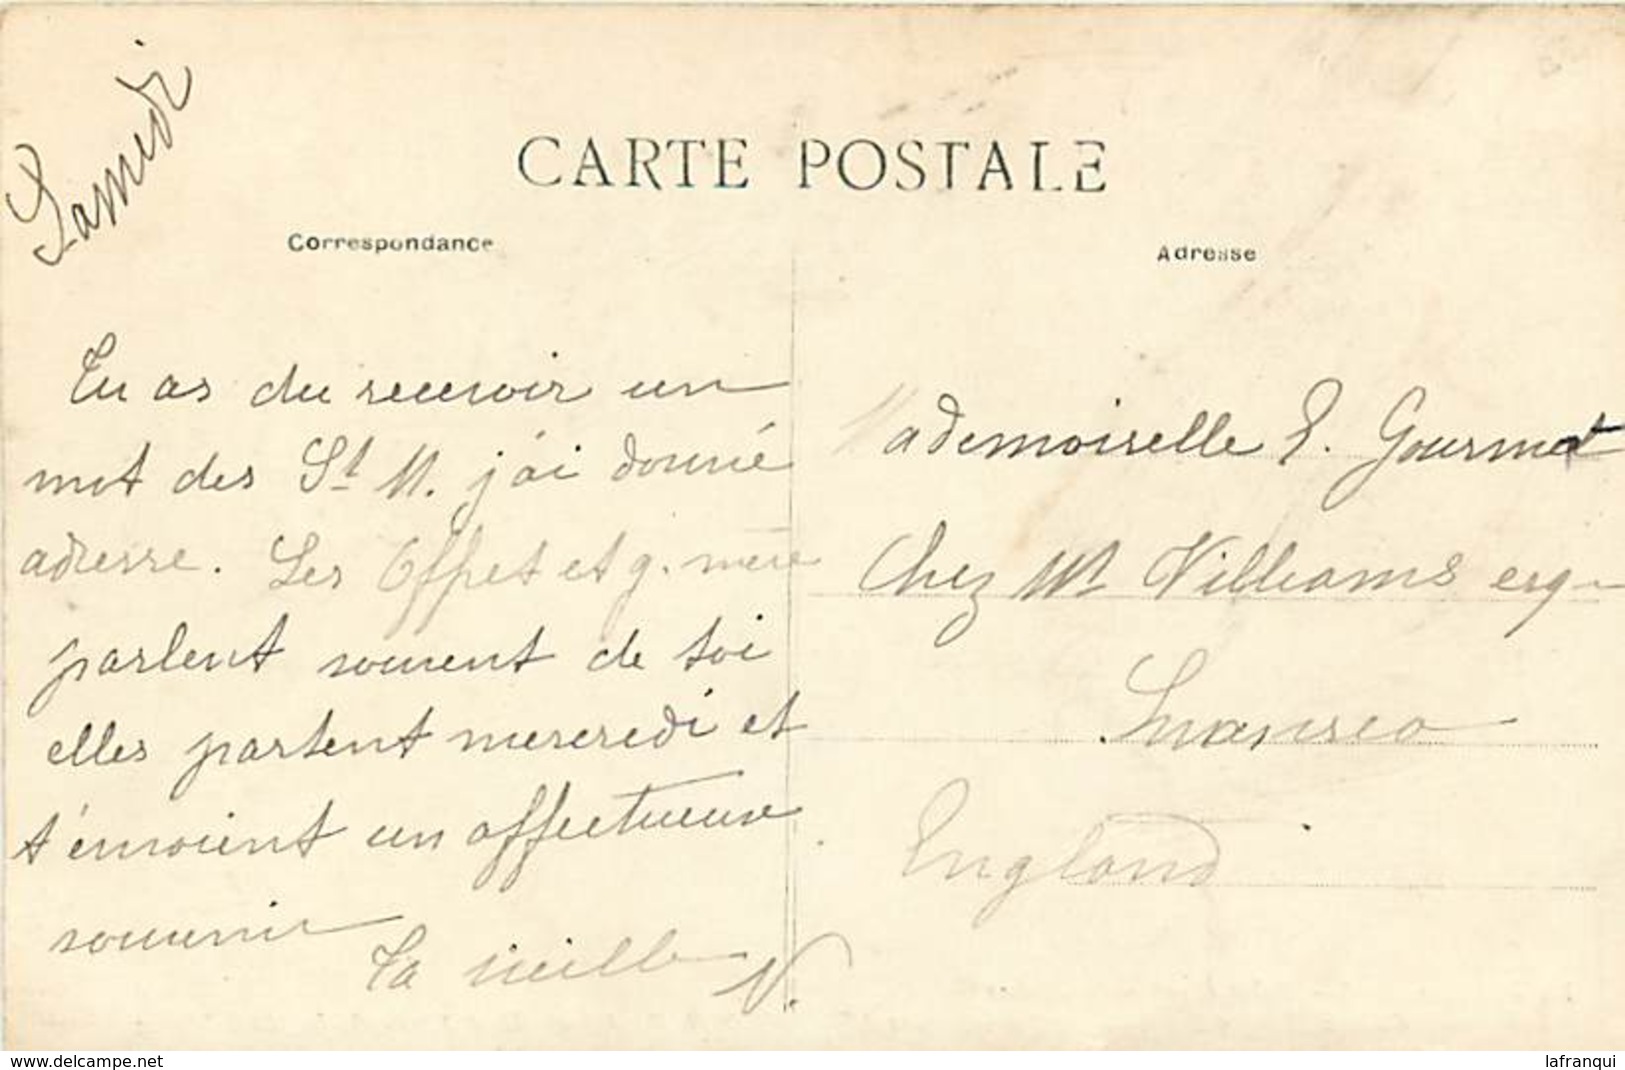 Samedi
CARTE POSTALE
Correspondance
Adresse
Tu as du recevoir un
mot des St M. j'ai donné
adresse. Les Offret et g. mère
parlent souvent de toi
elles partent mercredi et
t'envoient un affectueuse
souvenir
Ta vieille V.
Mademoiselle E. Gourmet
Chez Mr Williams esq.
Swansea
England
www.delcampe.net
lafranqui